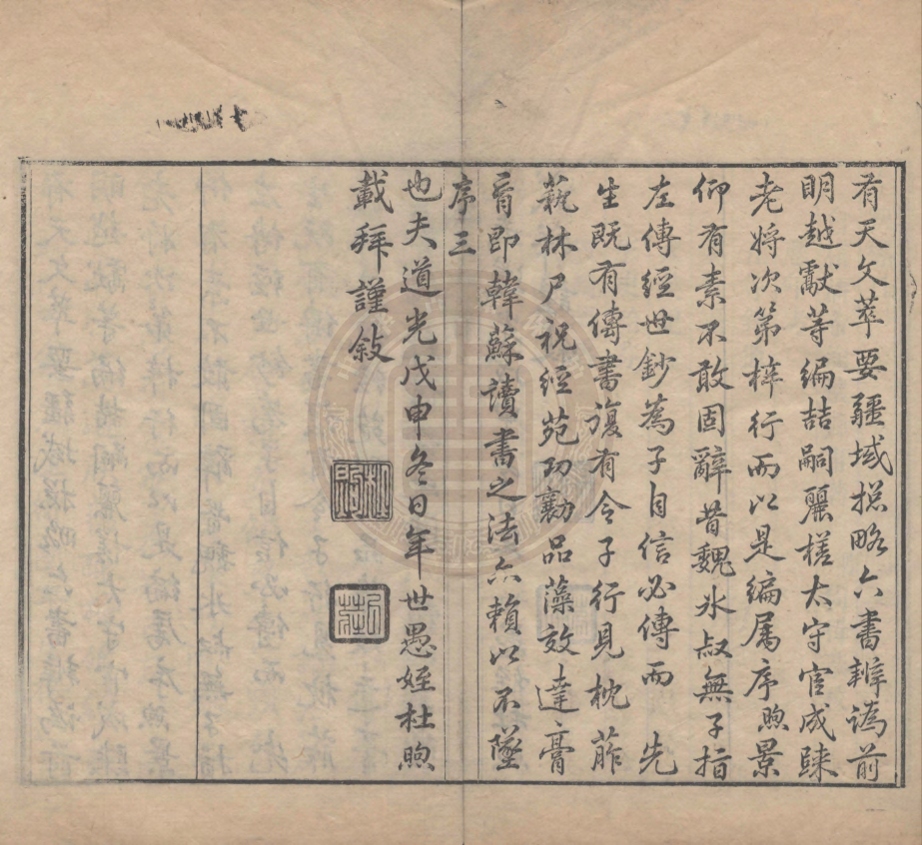 有天文萃要疆域撮略六書辨譌前
明越獻等編喆嗣麗槎太守官成歸
老將次第梓行而以是編属序煦景
仰有素不敢固辭昔魏氷叔無子指
左傳經世鈔為子自信必傳而 先
生既有傳書復有令子行見枕葄
藝林尸祝經苑功勷品藻效達膏
肓即韓蘇讀書之法亦賴以不墜
序三
也夫道光戊申冬日年世愚姪杜煦
載拜謹敍
杜煦